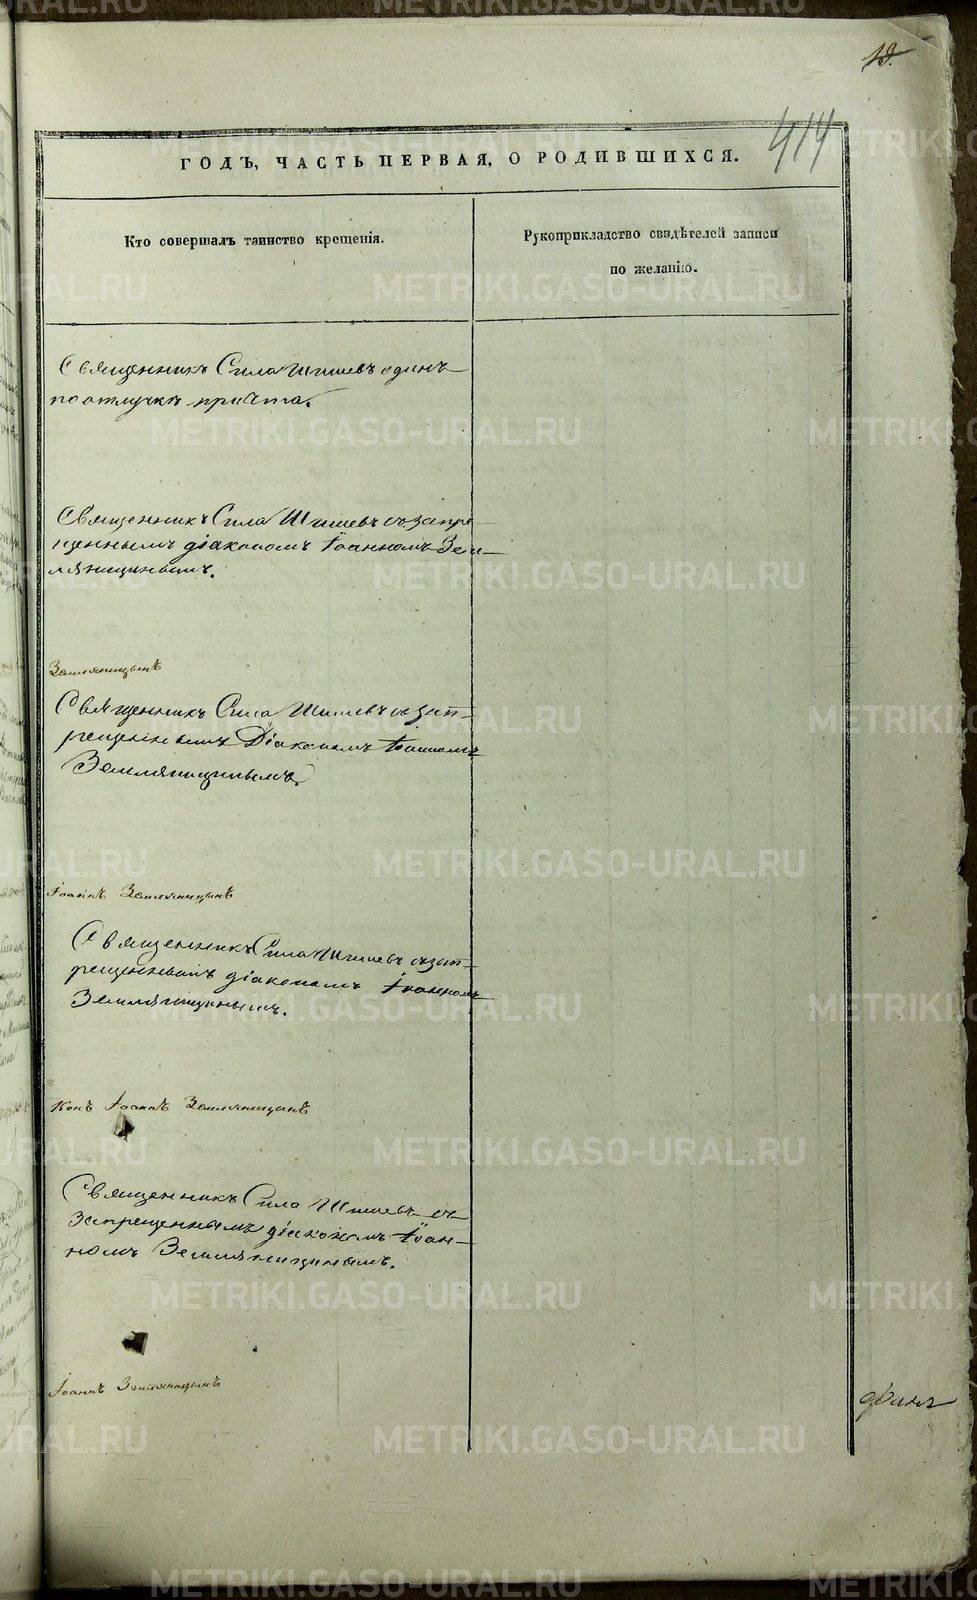 19.
414
ГОДЪ, ЧАСТЬ ПЕРВАЯ, О РОДИВШИХСЯ.
Кто совершалъ таинство крещенія.
Рукоприкладство свидѣтелей записи
по желанію.
Священникъ Сила Шишевъ одинъ
по отлучкѣ причта.
Священникъ Сила Шишевъ съ запре-
щеннымъ діакономъ Іоанномъ Зем-
ляницинымъ.
Земляницынъ
Священникъ Сила Шишевъ съ зап-
рещеннымъ Діакономъ Іоанномъ
Земляницинымъ.
Іоаннъ Земляницынъ
Священникъ Сила Шишевъ съ зап-
рещеннымъ діакономъ Іоанномъ
Земляницинымъ.
Іоаннъ Земляницынъ
Священникъ Сила Шишевъ съ
запрещеннымъ діакономъ Іоан-
номъ Земляницинымъ.
Іоаннъ Земляницынъ
METRIKI.GASO-URAL.RU